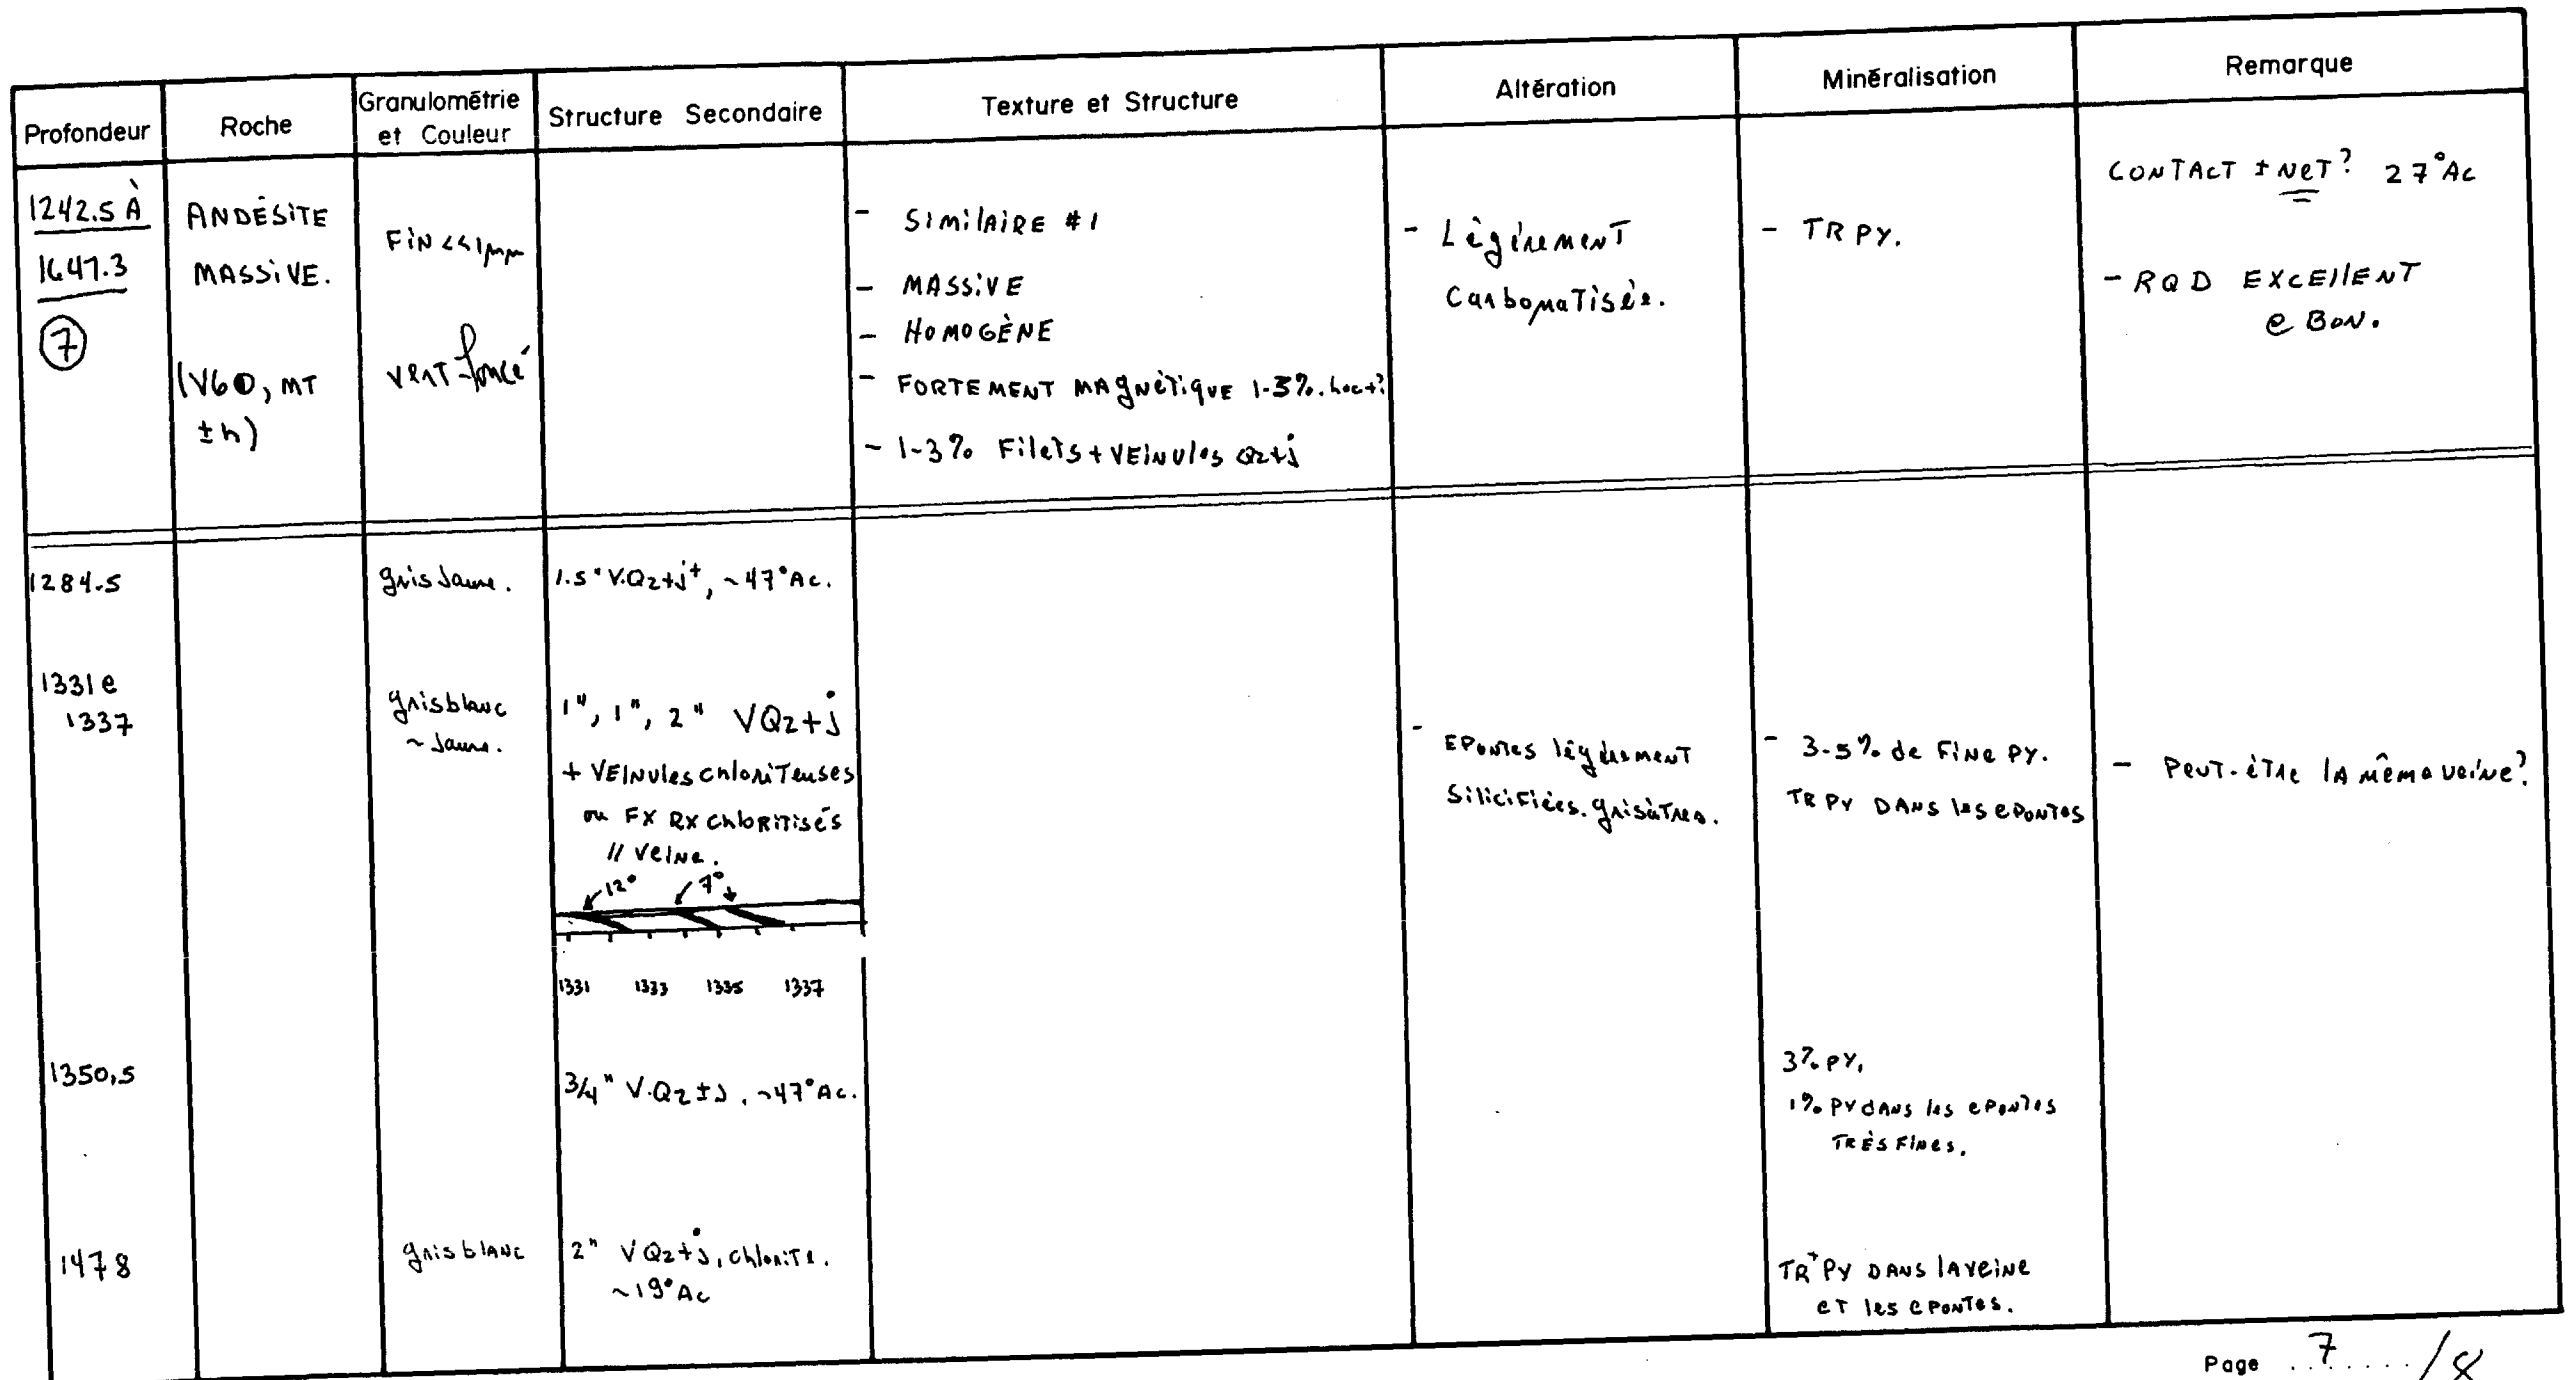 Profondeur Roche Granulométrie et Couleur Structure Secondaire Texture et Structure Altération Minéralisation Remarque
1242.5 À
1647.3
7
ANDÉSITE
MASSIVE.
(V6D, MT
±h)
FiN <<1mm
vert-foncé
- SIMILAIRE #1
- MASSIVE
- HOMOGÈNE
- FORTEMENT MAGNÉTIQUE 1-3%
- 1-3% Filets + VEINULES Qz+j
- Légèrement
Carbonatisée.
- TR PY.
CONTACT ± NET? 27°Ac
- RQD EXCELLENT
@ BON.
1284.5
gris Jaune.
1.5" V.Qz+j+, ~47°Ac.
1331 @
1337
grisblanc
~ Jaune.
1", 1", 2" VQz+j
+ VEINULES chloriteuses
ou FX RX chloritisés
// veine.
12° 7°
1331 1333 1335 1337
- EPONTES légèrement
Silicifiées. grisâtres.
- 3-5% de Fine PY.
TR PY DANS les EPONTES
- PEUT-être LA même veine?
1350,5
3/4" V.Qz ± J, ~47°Ac.
3% PY,
1% PY dANS les EPONTES
TRÈS FINES.
1478
grisblanc
2" VQz+j, chlorite.
~19°Ac
TR+ PY DANS la veine
et les EPONTES.
Page 7 / 8